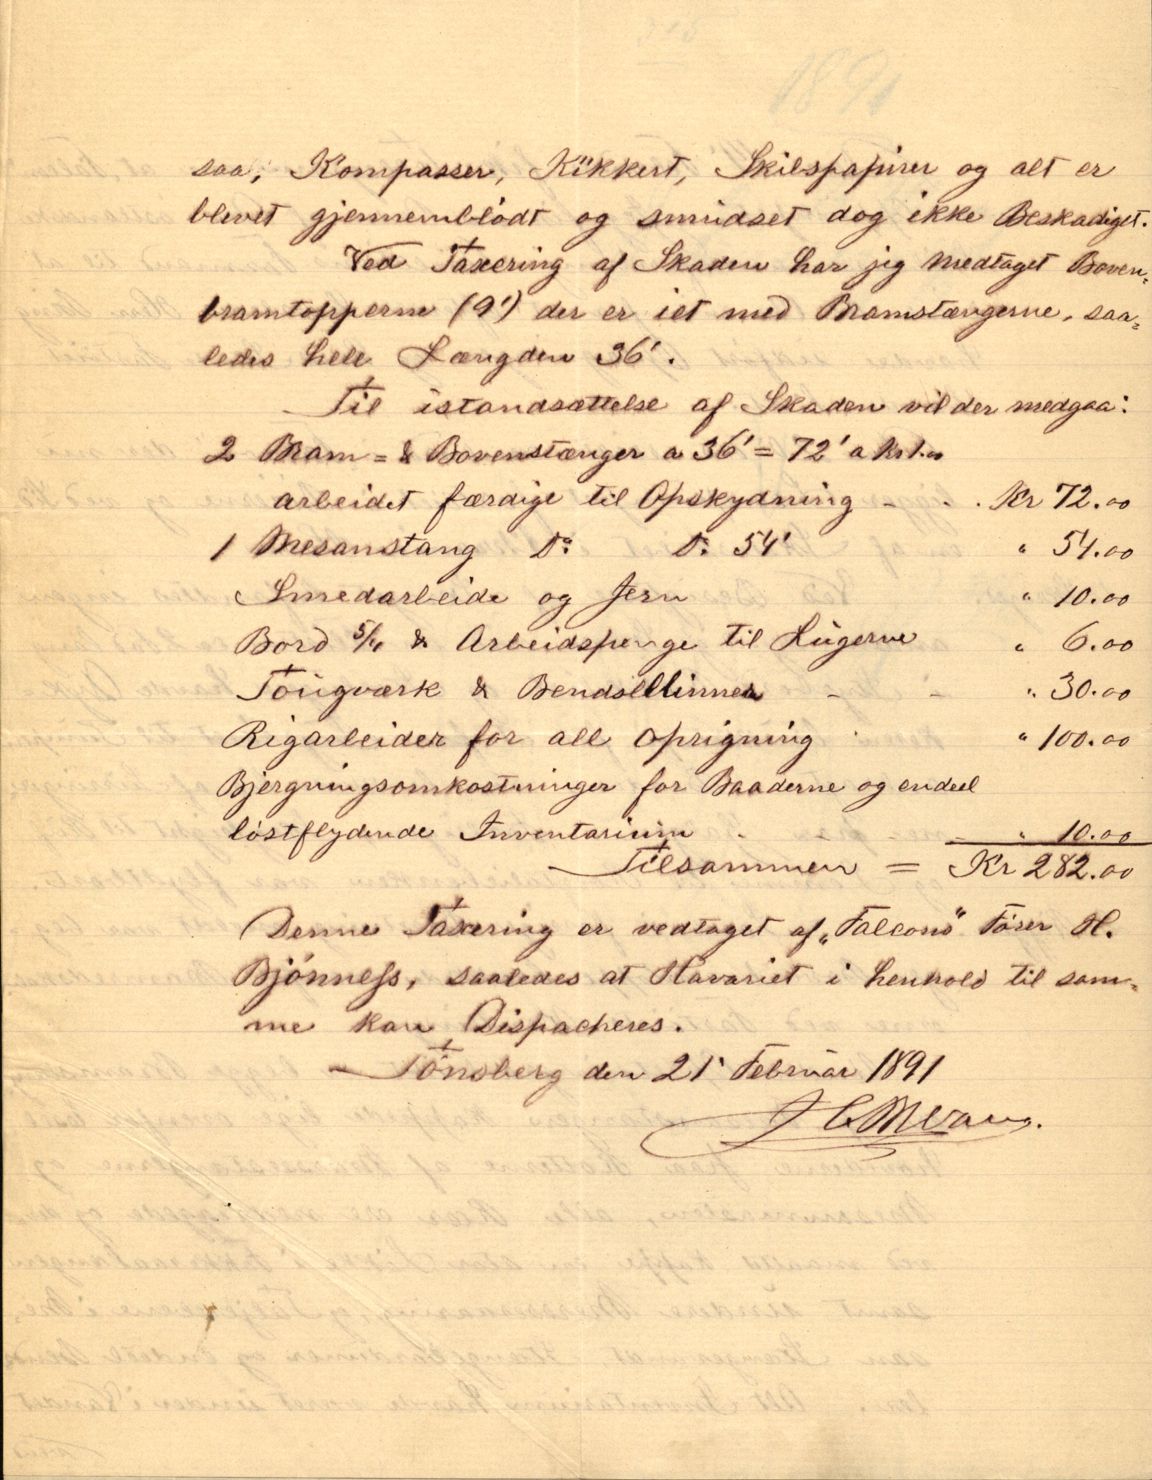 1891
saa, Kompasser, Kikkert, Skibspapirer og alt er
blevet gjennemblödt og smudset dog ikke Beskadiget.
Ved Taxering af Skaden har jeg medtaget Boven-
bramtopperne (9') der er iet med Bramstængerne, saa=
ledes hele Længden 36'.
Til istandsættelse af Skaden vil der medgaa:
2 Bram= & Bovenstænger a 36' = 72' a Kr 1.00
arbeidet færdige til Opskydning - - . Kr 72.00
1 Mesanstang Do: Do: 54' " 54.00
Smedarbeide og Jern " 10.00
Bord 5/4 & Arbeidspenge til Lugerne " 6.00
Tougværk & Bendsellinner - - " 30.00
Rigarbeider for all Oprigning " 100.00
Bjergningsomkostninger for Baaderne og endeel
löstflydende Inventarium - - - " 10.00
Tilsammen = Kr 282.00
Denne Taxering er vedtaget af „Falcons" Förer H.
Bjönness, saaledes at Havariet i henhold til sam=
me kan Dispacheres.
Tönsberg den 21' Februar 1891